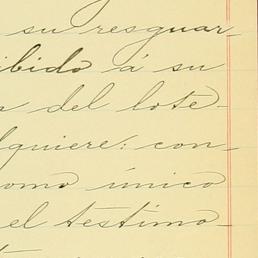 su resguar-
ibido á su
del lote-
lquiere: con-
omo único
el testimo-